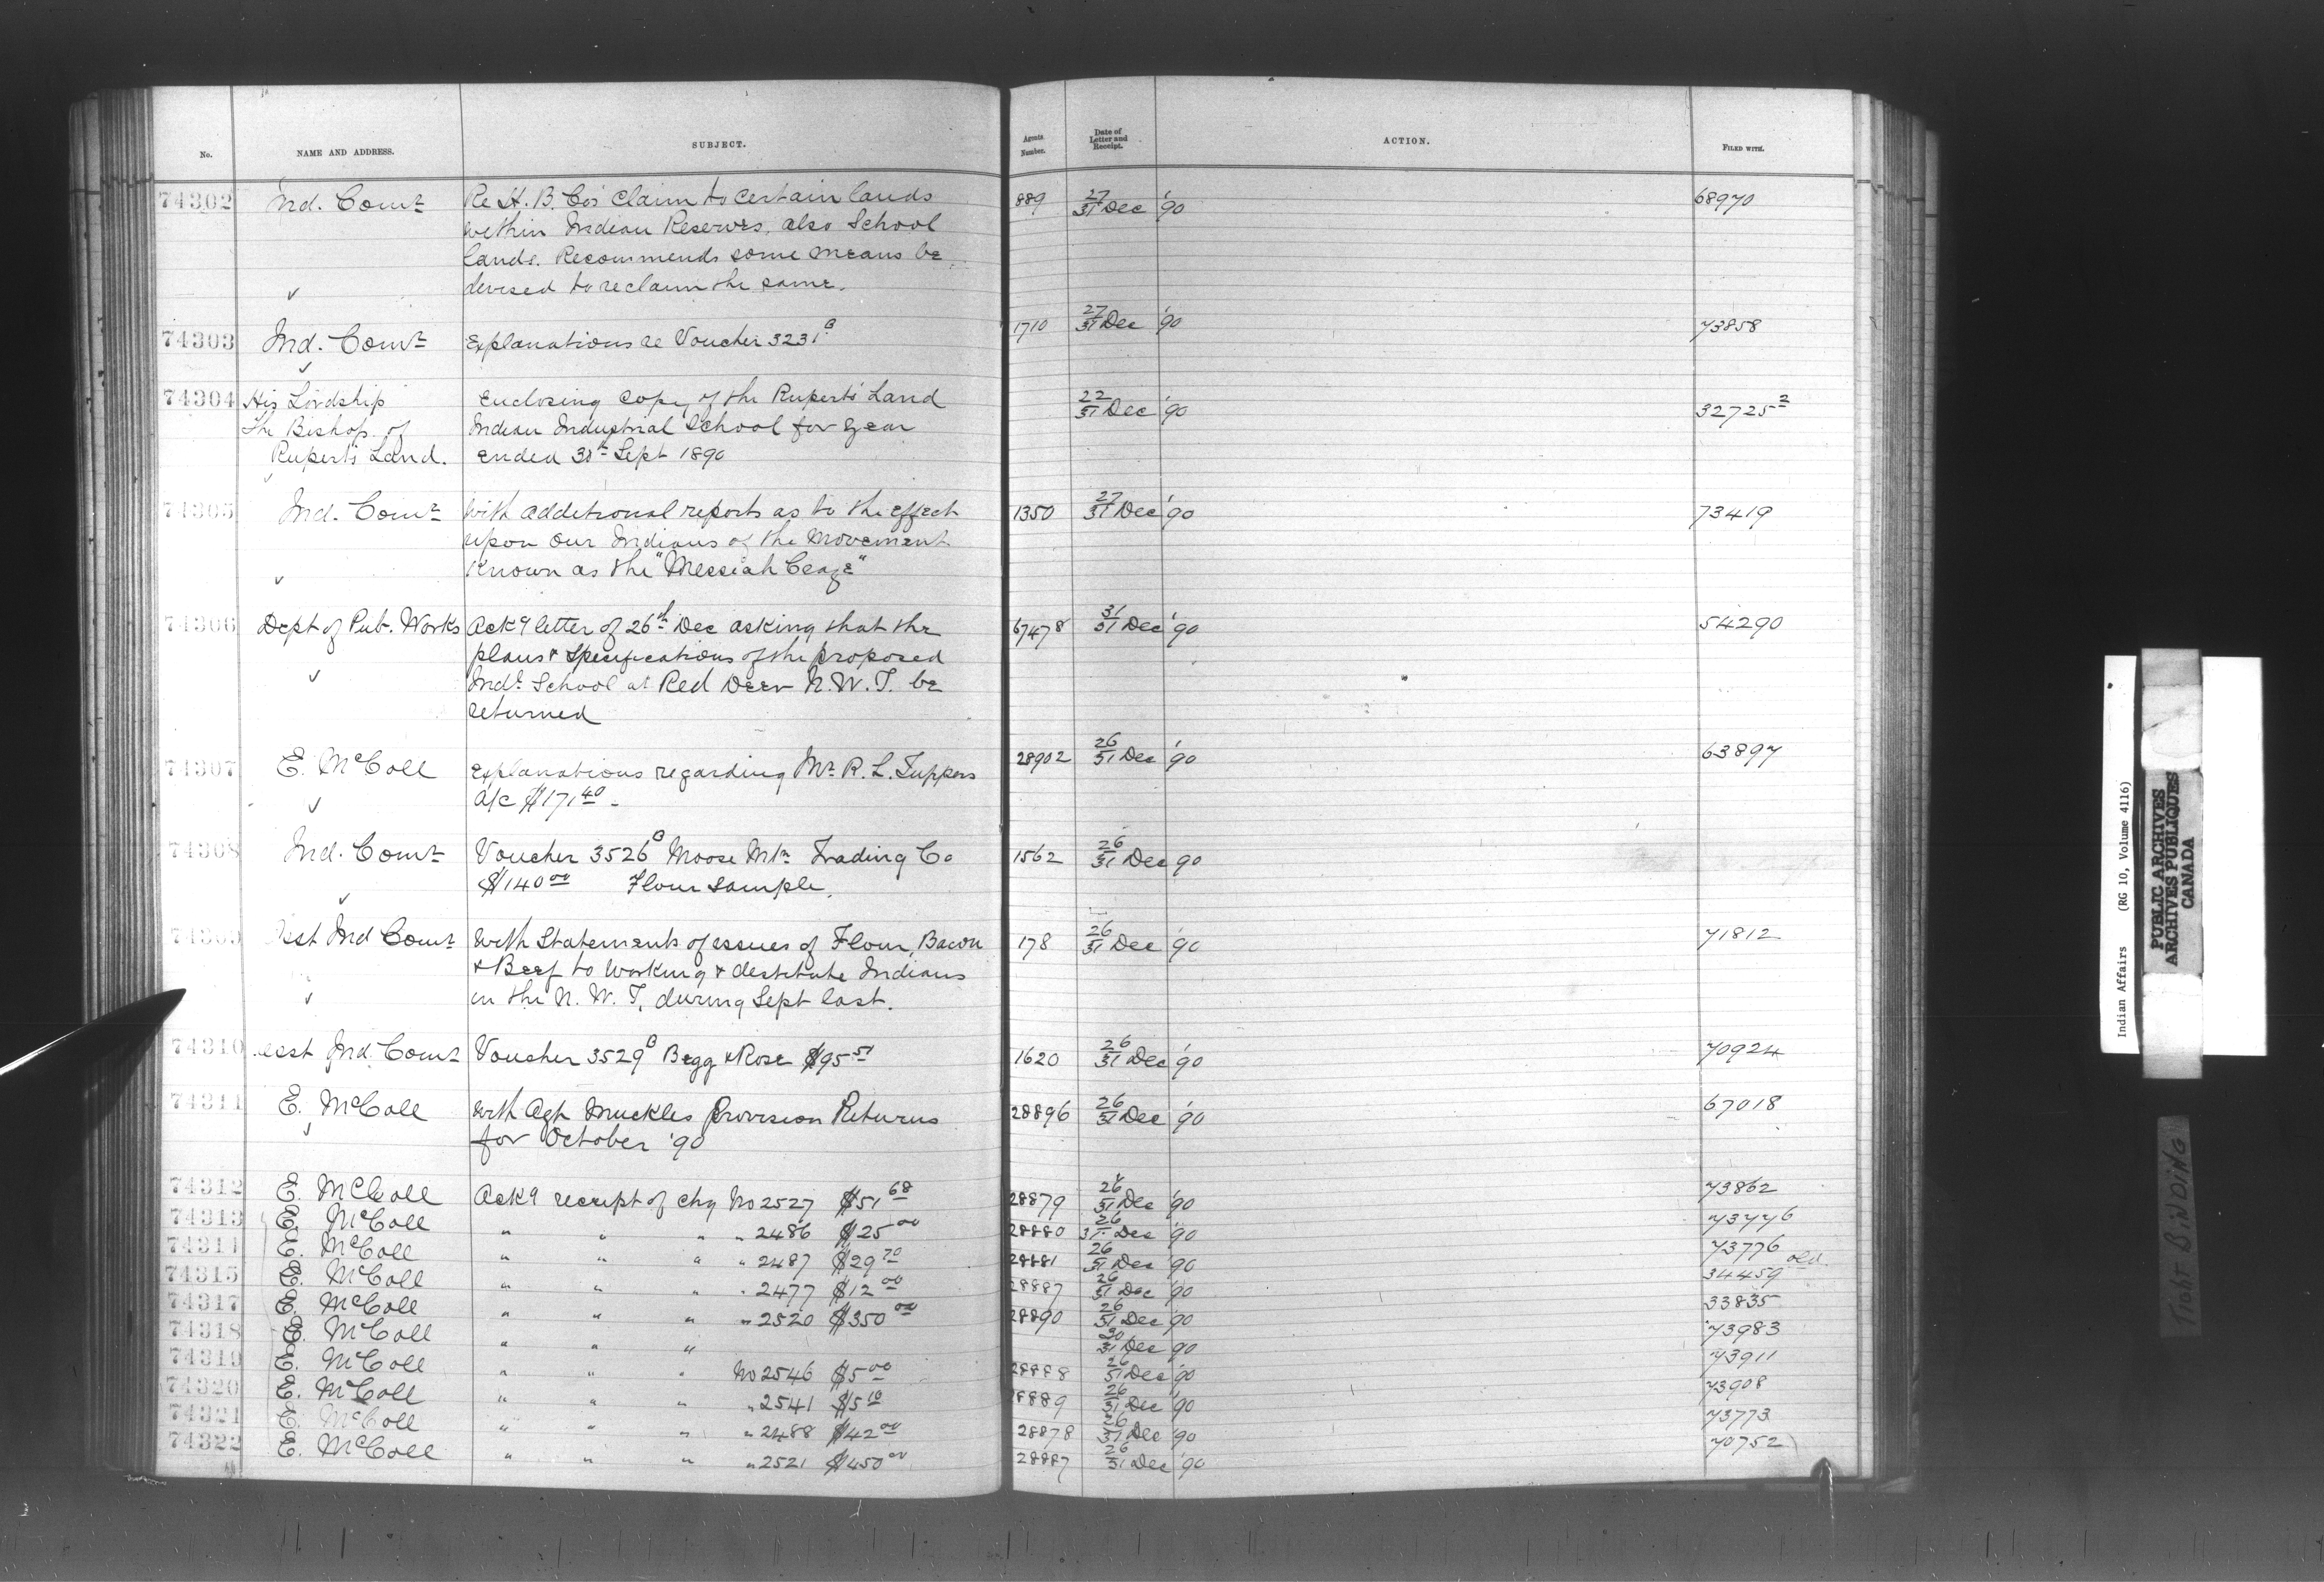 No. NAME AND ADDRESS. SUBJECT. Agents Number. Date of Letter and Receipt. ACTION. FILED WITH.
74302 Ind. Comr Re H. B. Co's claim to certain lands 889 27/31 Dec '90 68970
within Indian Reserves, also School
lands. Recommends some means be
devised to reclaim the same.
74303 Ind. Comr Explanations re Voucher 3231B 1710 27/31 Dec '90 73858
74304 His Lordship Enclosing copy of the Rupert's Land 22/31 Dec '90 32725 2
The Bishop of Indian Industrial School for year
Rupert's Land. ended 30th Sept 1890
74305 Ind. Comr With additional reports as to the effect 1350 27/31 Dec '90 73419
upon our Indians of the movement
known as the "Messiah Craze"
74306 Dept of Pub. Works Ackg letter of 26th Dec asking that the 67478 31/31 Dec '90 54290
plans & Specifications of the proposed
Indl School at Red Deer N.W.T. be
returned
74307 E. McColl Explanations regarding Mr R. L. Tuppers 28902 26/31 Dec '90 63897
a/c $171 40 -
74308 Ind. Comr Voucher 3526B Moose Mtn Trading Co 1562 26/31 Dec 90
$140 00 Flour sample.
Asst Ind Comr With Statements of issues of Flour, Bacon 178 26/31 Dec '90 71812
& Beef to working & destitute Indians
in the N. W. T, during Sept last.
74310 Asst Ind. Comr Voucher 3529B Begg & Rose $95 51 1620 26/31 Dec '90 70924
74311 E. McColl With Agt Muckles Provision Returns 28896 26/31 Dec '90 67018
for October '90
74312 E. McColl Ackg receipt of chq No 2527 $51 68 28879 26/31 Dec '90 73862
74313 E. McColl " " " " 2486 $25 00 28880 26/31 Dec '90 73776
74314 E. McColl " " " " 2487 $29 70 28881 26/31 Dec '90 73776
74315 E. McColl " " " " 2477 $12 00 28887 26/31 Dec '90 34459 old
74317 E. McColl " " " " 2520 $350 00 28890 26/31 Dec '90 33835
74318 E. McColl " " " 30/31 Dec 90 73983
74319 E. McColl " " " No 2546 $5 00 28888 26/31 Dec '90 73911
74320 E. McColl " " " " 2541 $5 10 28889 26/31 Dec '90 73908
74321 E. McColl " " " " 2488 $42 00 28878 26/31 Dec '90 73773
74322 E. McColl " " " " 2521 $450 00 28887 26/31 Dec '90 70752
Indian Affairs (RG 10, Volume 4116)
PUBLIC ARCHIVES
ARCHIVES PUBLIQUES
CANADA
TIGHT BINDING